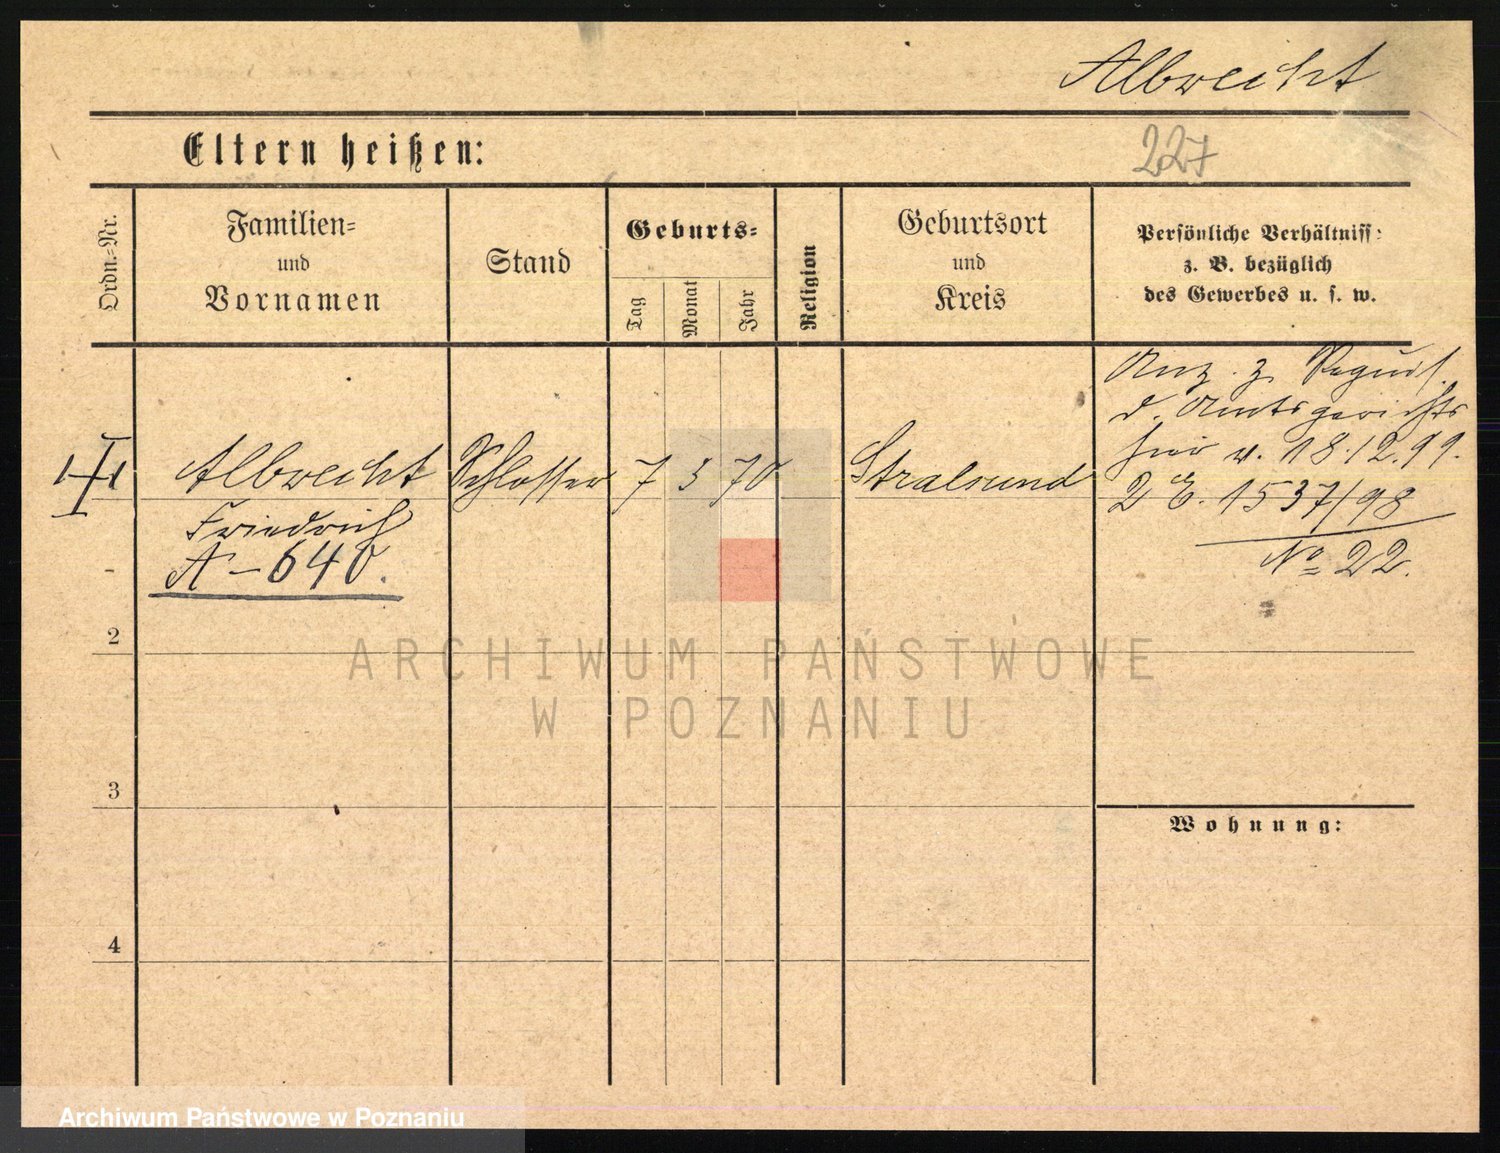 Albrecht
Eltern heißen:
227
Ordn.=Nr.
Familien=
und
Vornamen
Stand
Geburts=
Tag
Monat
Jahr
Religion
Geburtsort
und
Kreis
Persönliche Verhältniss:
z. B. bezüglich
des Gewerbes u. s. w.
Albrecht
Schlosser
7
3
70
Stralsund
Friedrich
A-640.
Anz. z. Requis.
d. Amtsgerichts
hier v. 18.12.99.
2 E. 1537/98
No 22.
2
3
4
Wohnung:
ARCHIWUM PAŃSTWOWE
W POZNANIU
Archiwum Państwowe w Poznaniu